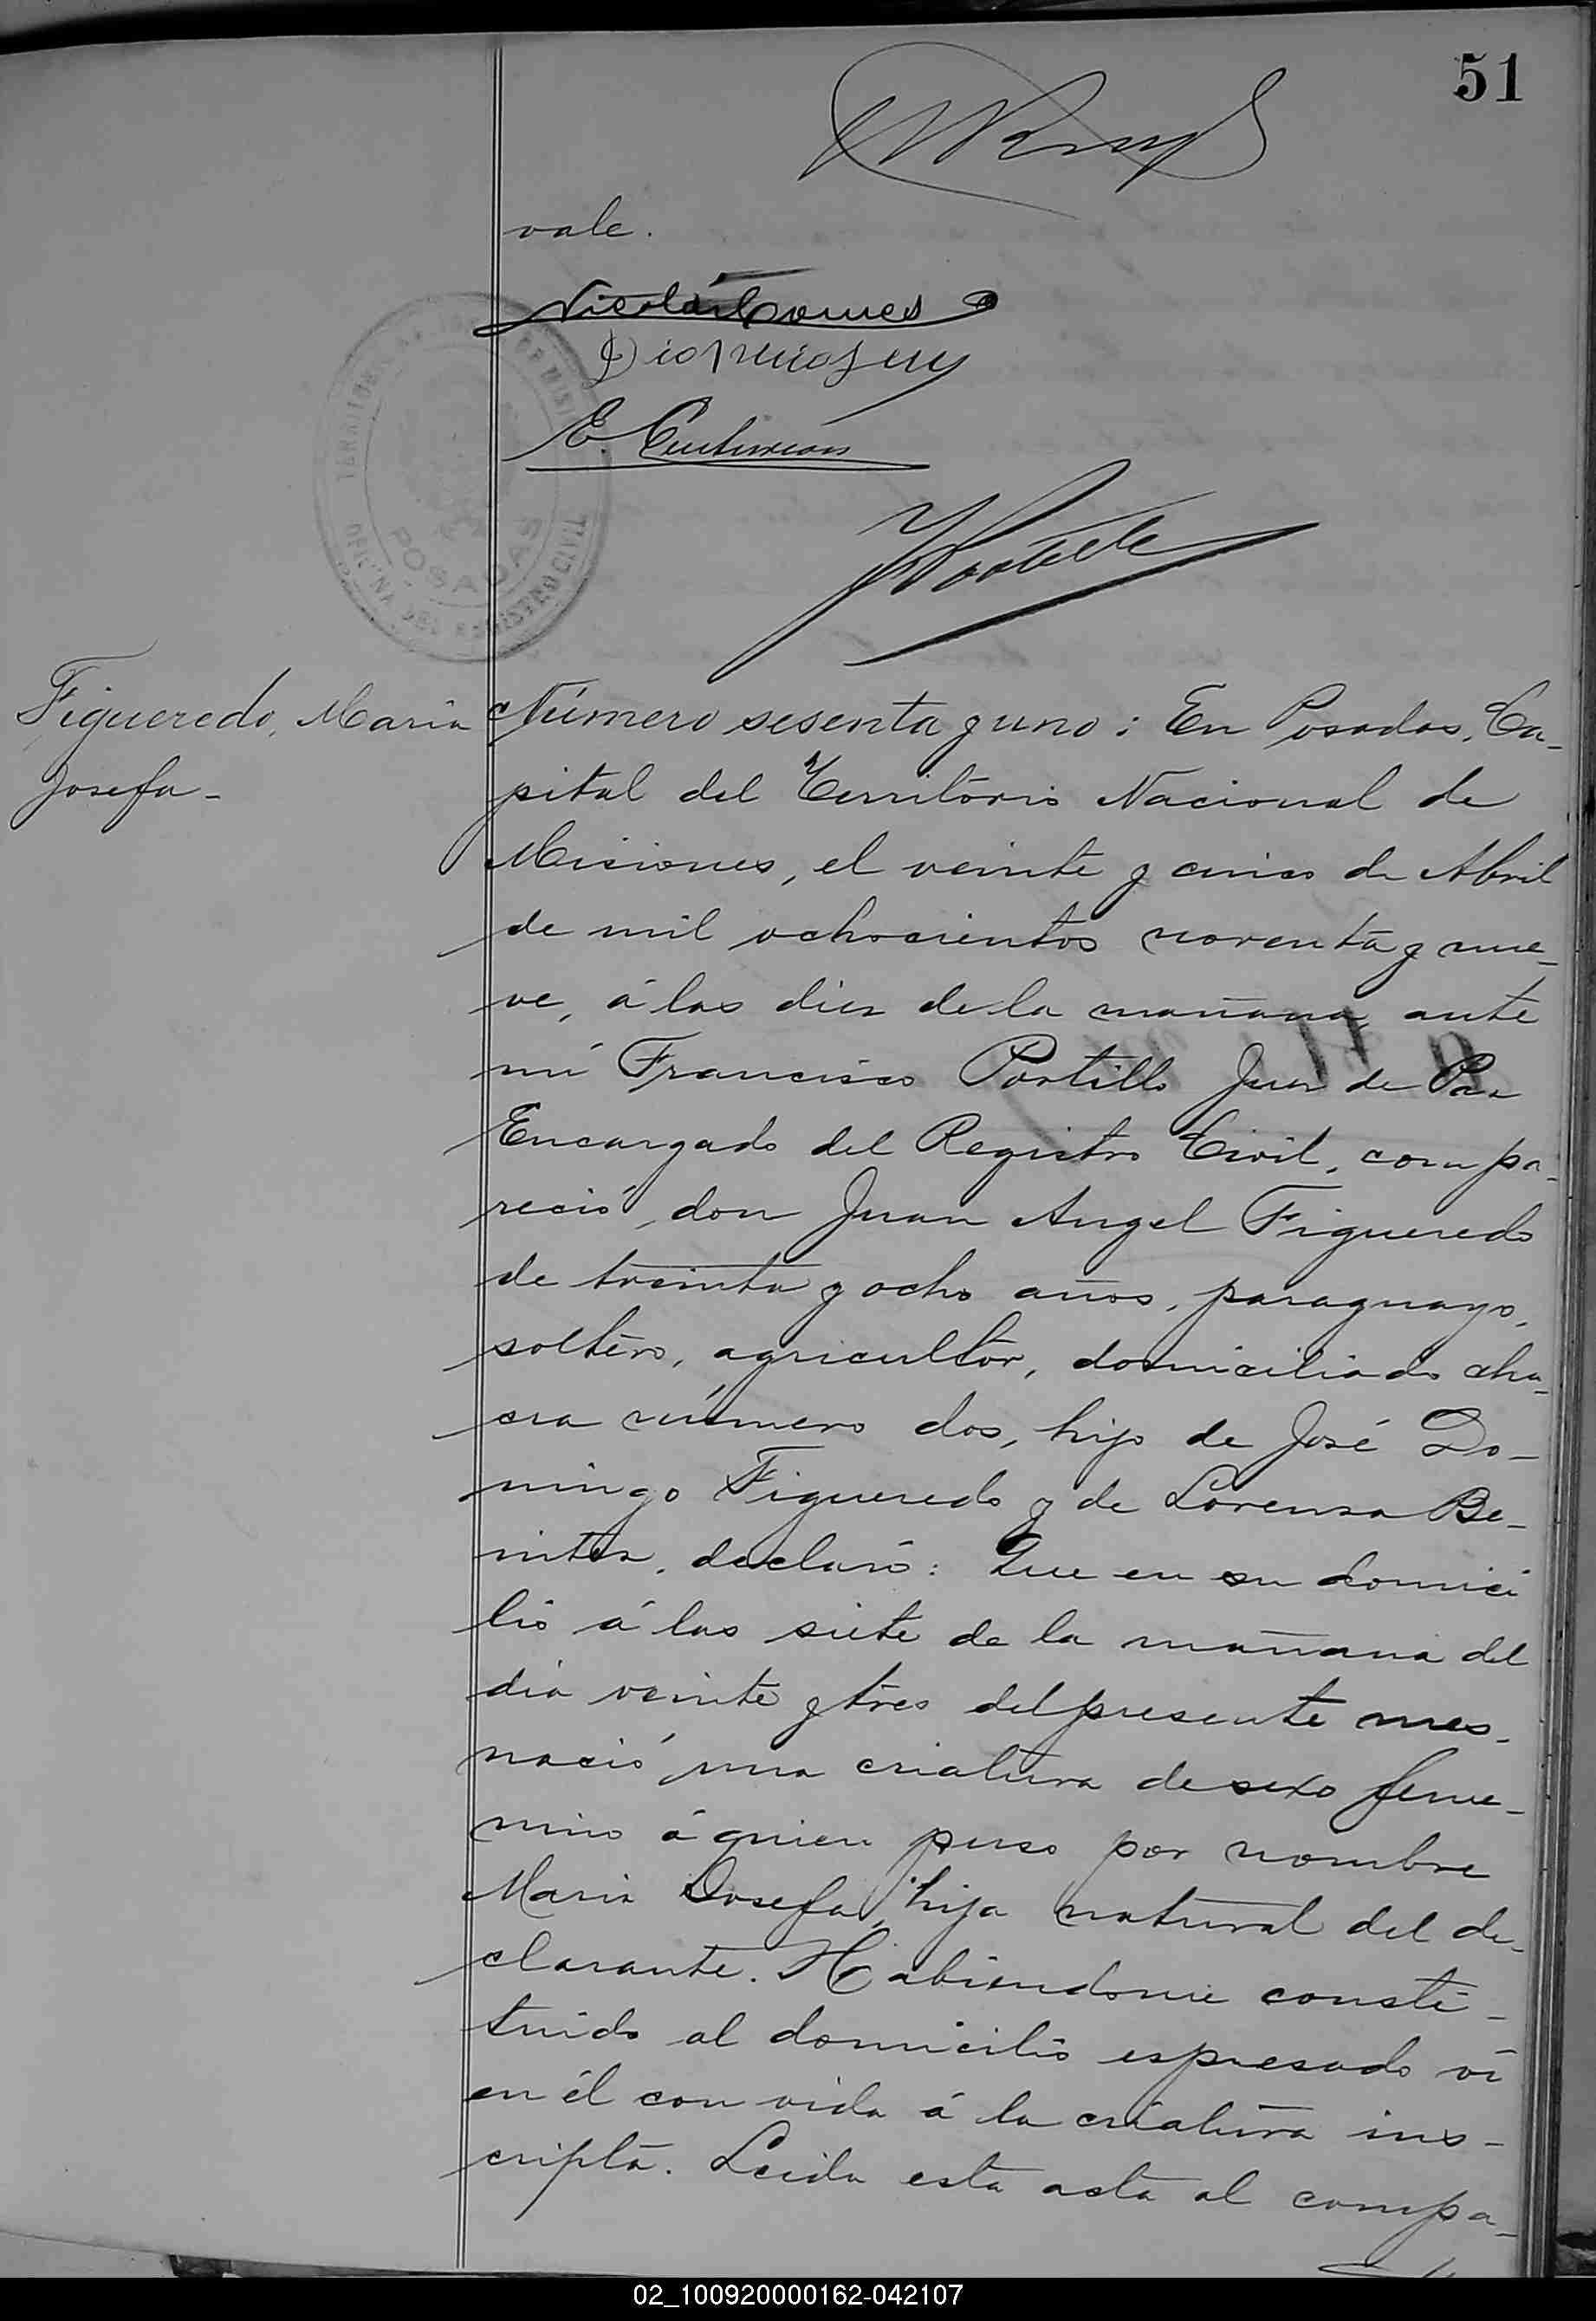 51
vale.
Nicolás Gomes
E. Centurion
TERRITORIO
POSADAS
OFICINA DEL REGISTRO CIVIL
Figueredo, Maria
Josefa -
Número sesenta y uno: En Posadas, Ca-
pital del Territorio Nacional de
Misiones, el veinte y cinco de Abril
de mil ochocientos noventa y nue-
ve, á las diez de la mañana, ante
mí Francisco Portillo Juez de Paz
Encargado del Registro Civil, compa-
reció, don Juan Angel Figueredo
de treinta y ocho años, paraguayo,
soltero, agricultor, domiciliado cha-
cra número dos, hijo de José Do-
mingo Figueredo y de Lorenza Be-
nitez, declaró: Que en su domici
lio á las siete de la mañana del
dia veinte y tres del presente mes,
nació una criatura de sexo feme-
nino á quien puso por nombre
Maria Josefa, hija natural del de-
clarante. Habiendome consti-
tuido al domicilio espresado ví
en él con vida á la criatura ins-
cripta. Leida esta acta al compa-
02_100920000162-042107